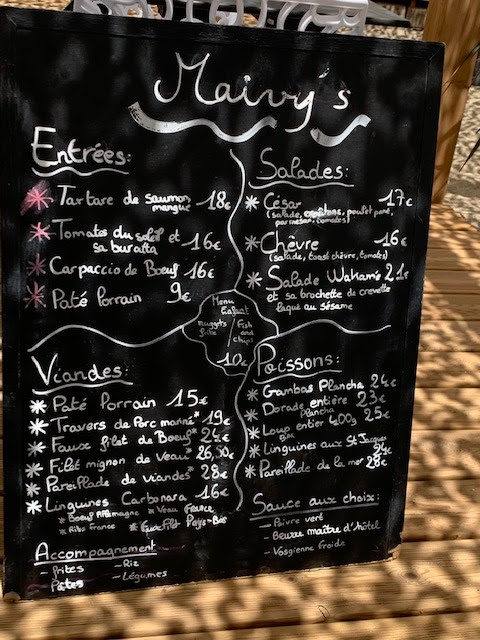 Maivy's
Entrées:
Tartare de saumon, 18€
mangue
Tomates du soleil et 16€
sa buratta
Carpaccio de Boeuf 16€
Paté Lorrain 9€
Salades:
César 17€
(salade, croutons, poulet pané,
parmesan, tomates)
Chêvre 16€
(salade, toast chèvre, tomates)
Salade Wakamé 21€
et sa brochette de crevette
laqué au sésame
Menu
Enfant
nuggets / Fish
frite / and
chips
10€
Viandes:
Paté Lorrain 15€
Travers de Porc mariné* 19€
Faux filet de Boeuf* 24€
Filet mignon de Veau* 26,50€
Pareillade de viandes* 28€
Linguines Carbonara 16€
* Boeuf Allemagne * Veau France
* Ribs France
Accompagnement
- frites - Riz
- Pâtes - Légumes
Poissons:
Gambas Plancha 24€
Dorade entière 23€
Plancha
Loup entier 400g 25€
Linguines aux St Jacques
24€
Pareillade de la mer 28€
Sauce aux choix:
- Poivre vert
- Beurre maître d'hôtel
- Vosgienne froide